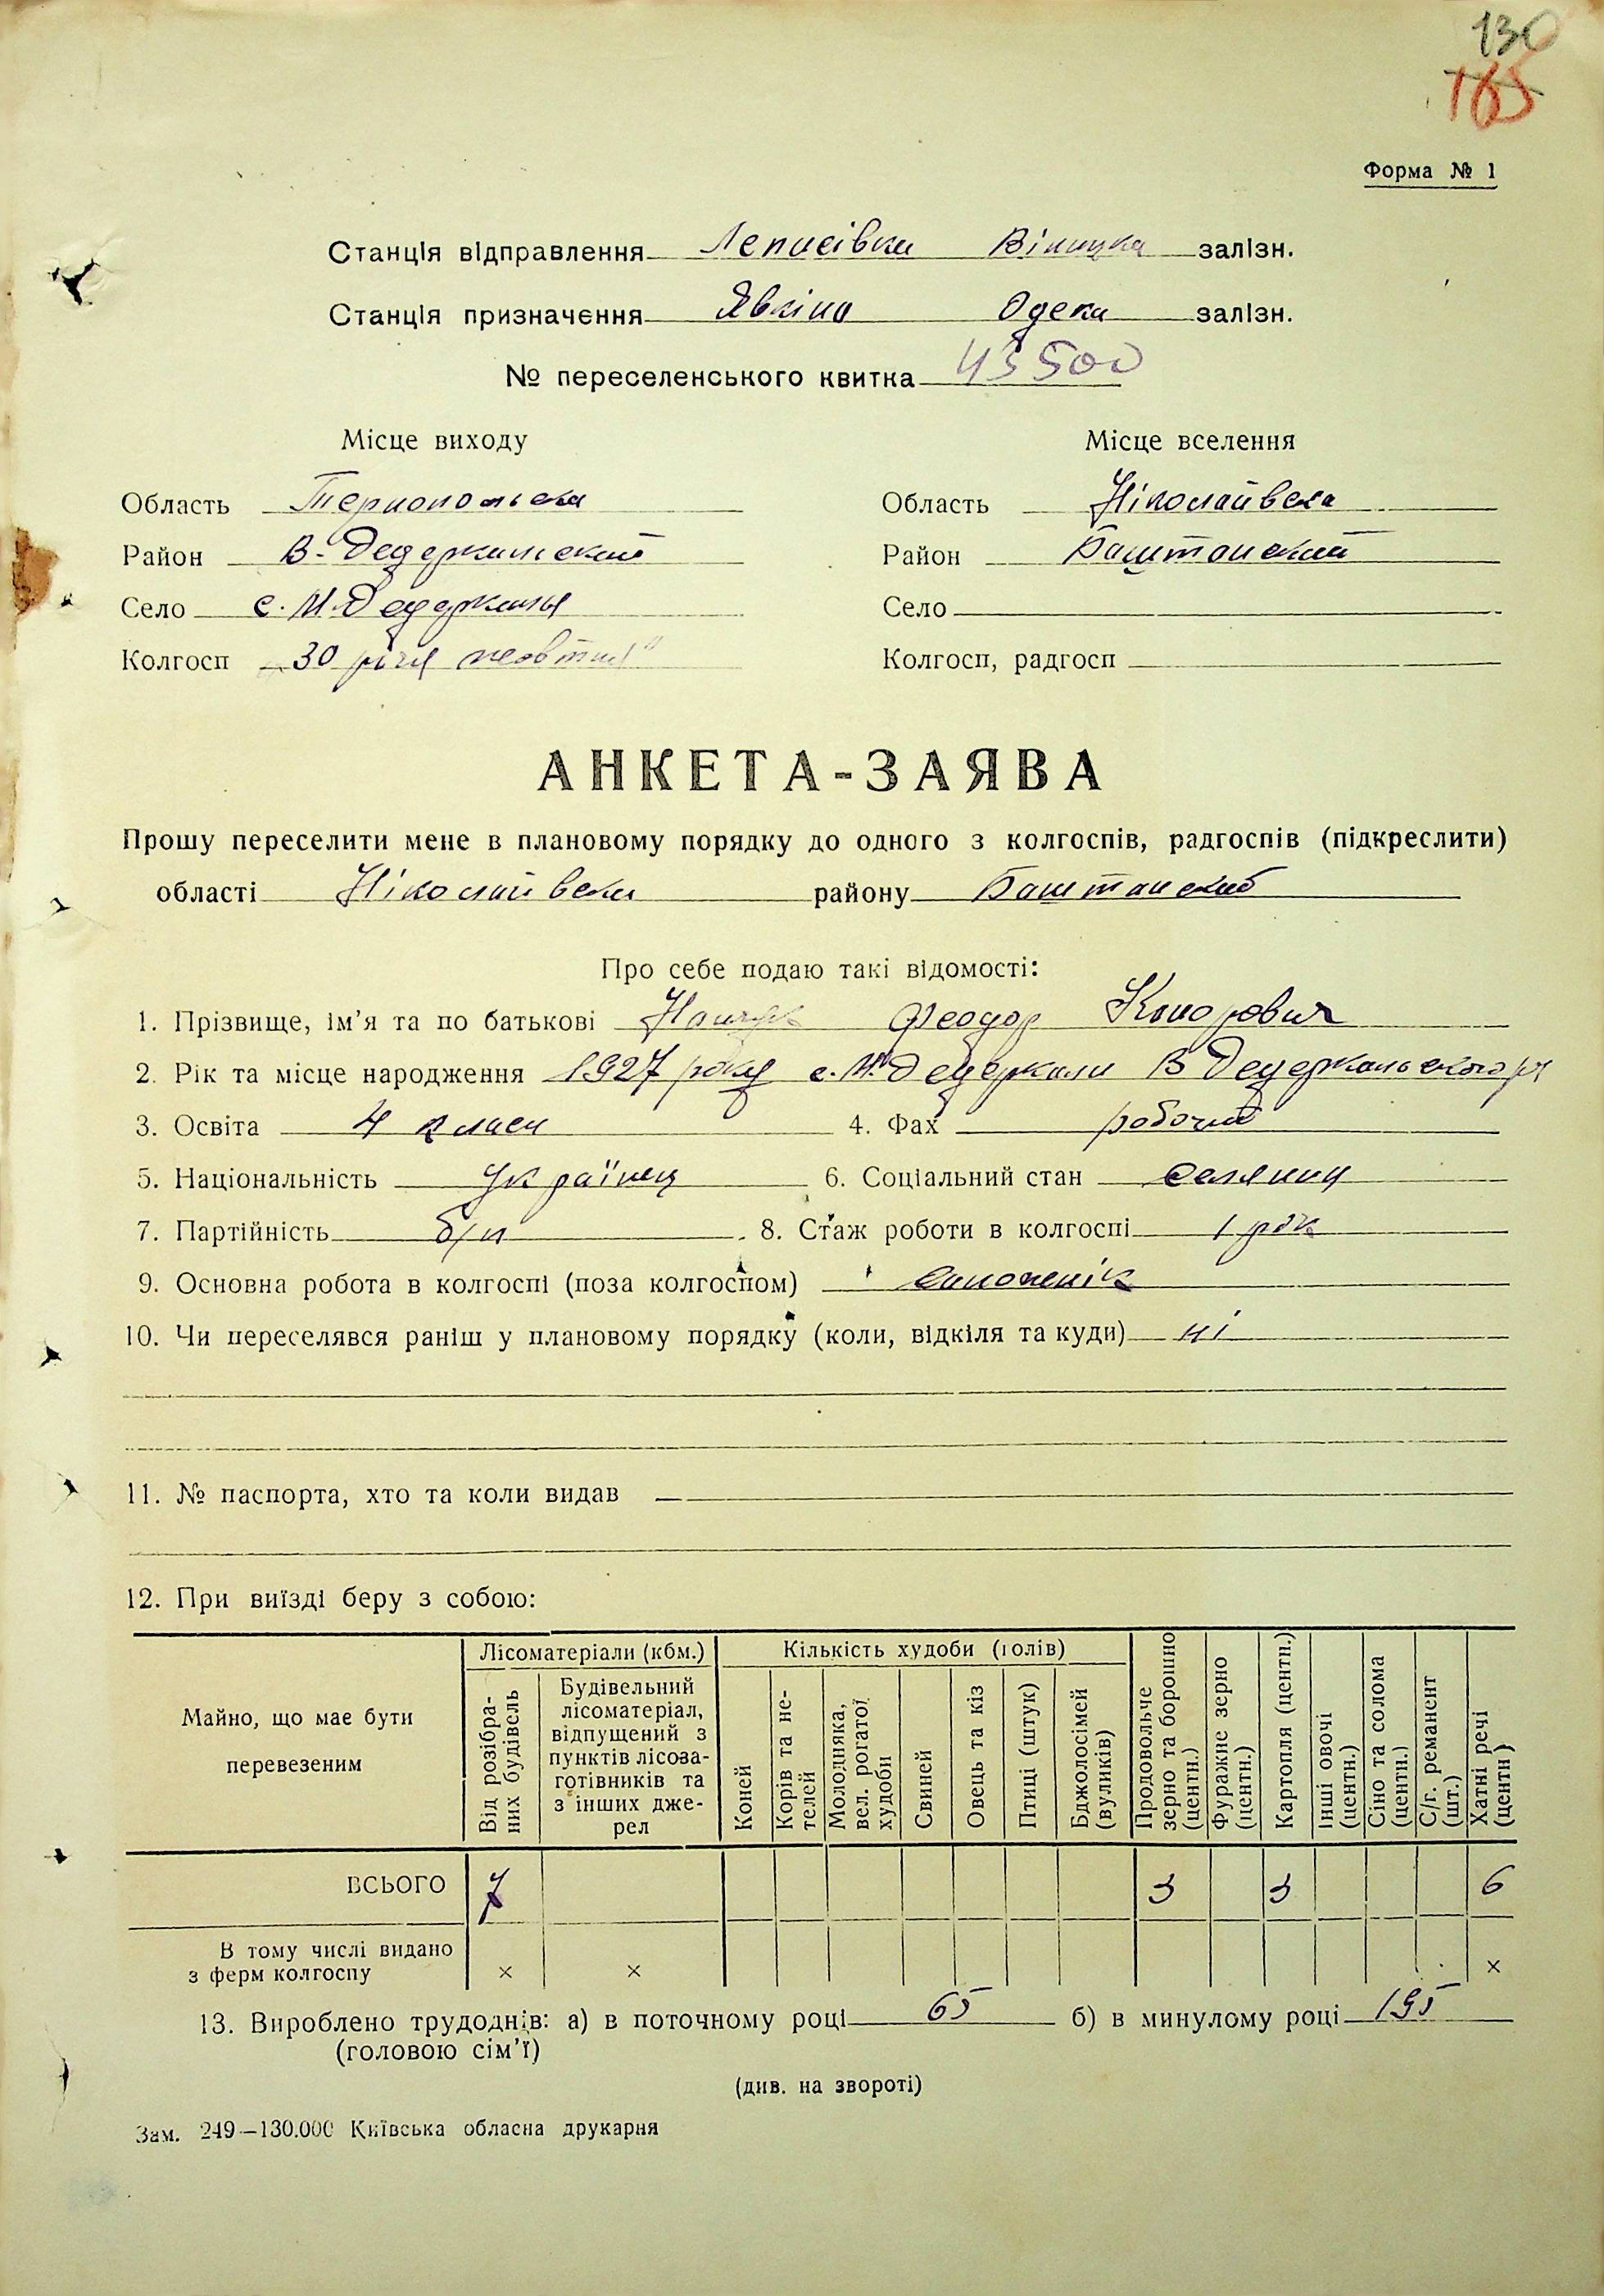 130
165
Форма № 1
Станція відправлення Леписівки Віницка залізн.
Станція призначення Явкіно Одека залізн.
№ переселенського квитка 43500
Місце виходу Місце вселення
Область Тернопольска Область Ніколайвска
Район В-Дедеркальский Район Баштанский
Село с. М.Дедеркалы Село
Колгосп „30 річя жовтня" Колгосп, радгосп
АНКЕТА-ЗАЯВА
Прошу переселити мене в плановому порядку до одного з колгоспів, радгоспів (підкреслити)
області Ніколайвски району Баштанский
Про себе подаю такі відомості:
1. Прізвище, ім'я та по батькові Феодор
2. Рік та місце народження 1927 року с. М.Дедеркали В Дедеркальского р н
3. Освіта 4 класи 4. Фах робочий
5. Національність українец 6. Соціальний стан селянин
7. Партійність б/п 8. Стаж роботи в колгоспі 1 рік
9. Основна робота в колгоспі (поза колгоспом)
10. Чи переселявся раніш у плановому порядку (коли, відкіля та куди) ні
11. № паспорта, хто та коли видав
12. При виїзді беру з собою:
Майно, що має бути перевезеним
Лісоматеріали (кбм.)
Від розібраних будівель
Будівельний лісоматеріал, відпущений з пунктів лісозаготівників та з інших джерел
Кількість худоби (голів)
Коней
Корів та нетелей
Молодняка, вел. рогатої худоби
Свиней
Овець та кіз
Птиці (штук)
Бджолосімей (вуликів)
Продовольче зерно та борошно (центн.)
Фуражне зерно (центн.)
Картопля (центн.)
Інші овочі (центн.)
Сіно та солома (центн.)
С/г. реманент (шт.)
Хатні речі (центн)
ВСЬОГО 7 3 3 6
В тому числі видано
з ферм колгоспу × × ×
13. Вироблено трудоднів: а) в поточному році 65 б) в минулому році 195
(головою сім'ї)
(див. на звороті)
Зам. 249—130.000 Київська обласна друкарня